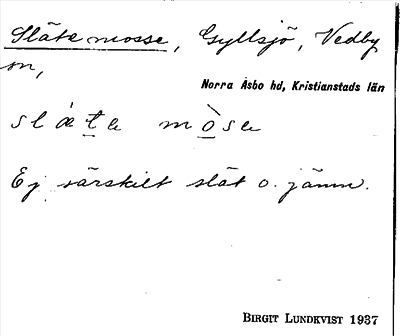 Släte mosse, Gyllsjö, Vedby
sn,
Norra Åsbo hd, Kristianstads län
slǽt̲e mò̲se
Ej särskilt slät o. jämn.
BIRGIT LUNDKVIST 1937